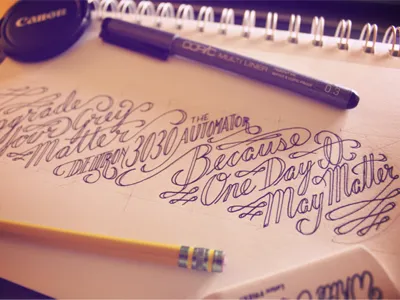 Canon
COPIC MULTI LINER 0.3
Upgrade
Your Grey
Matter
DELTRON 3030
THE
AUTOMATOR
Because
One Day It
May Matter